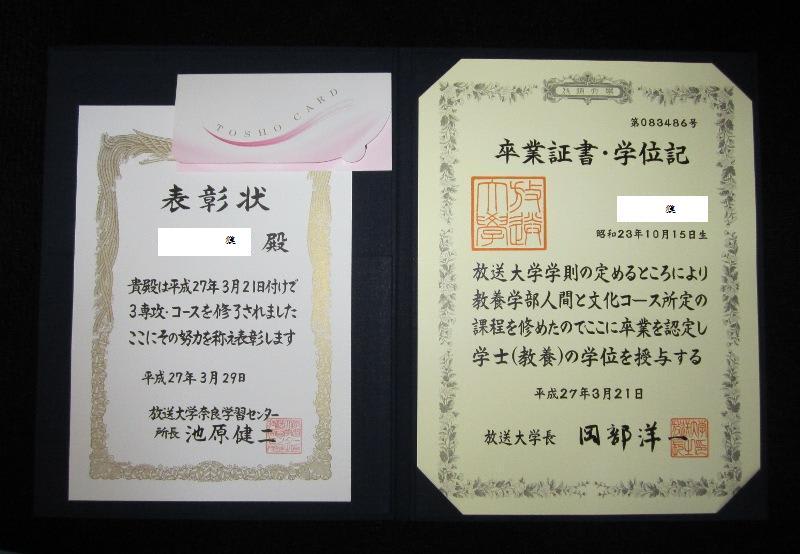 TOSHO CARD
表彰状
殿
貴殿は平成27年3月21日付けで
3専攻・コースを修了されました
ここにその努力を称え表彰します
平成27年3月29日
放送大学奈良学習センター
所長 池原健二
第083486号
卒業証書・学位記
放送大學
昭和23年10月15日生
放送大学学則の定めるところにより
教養学部人間と文化コース所定の
課程を修めたのでここに卒業を認定し
学士(教養)の学位を授与する
平成27年3月21日
放送大学長 岡部洋一